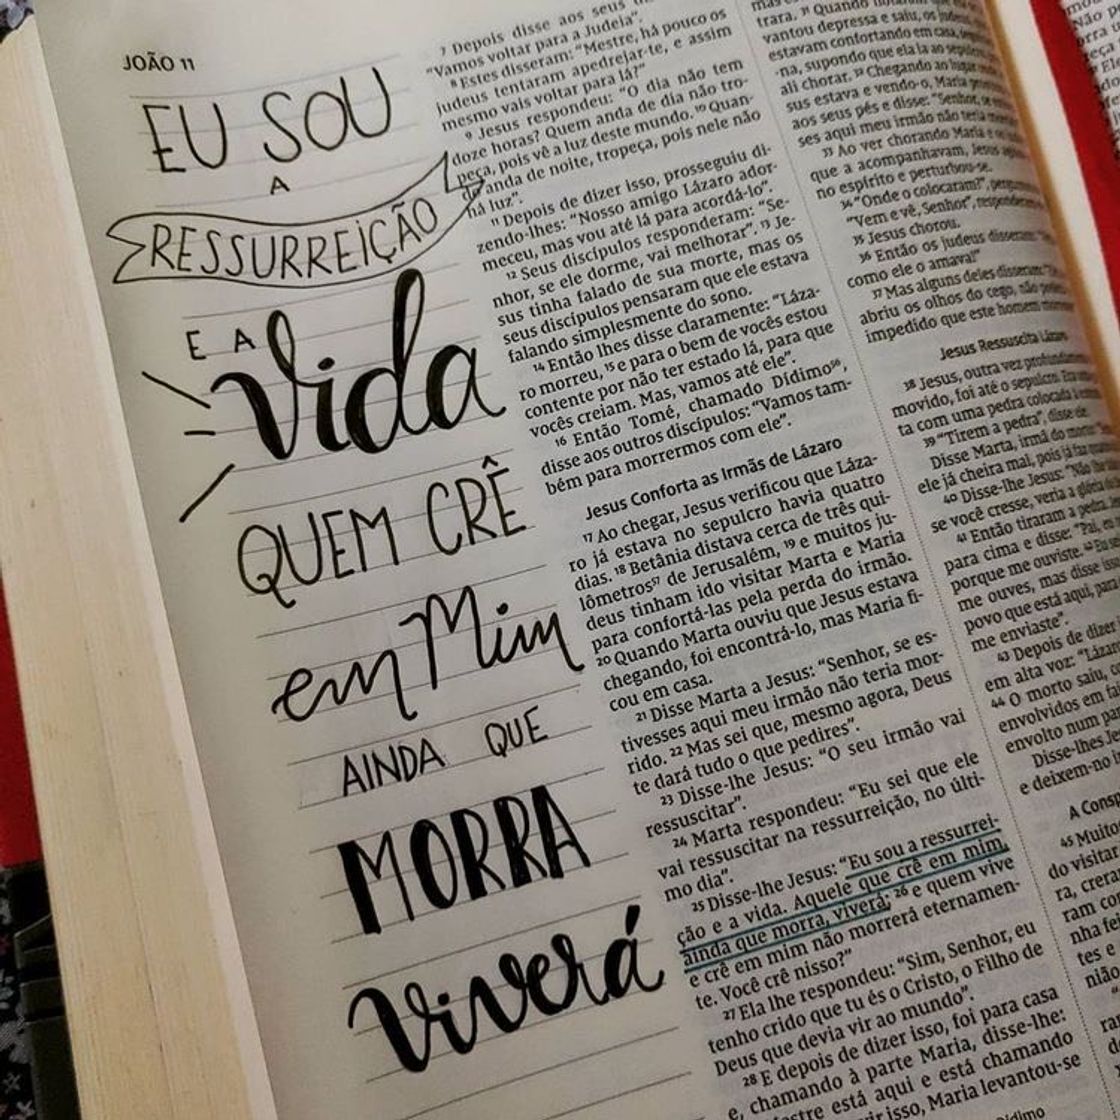 JOÃO 11
EU SOU
A
RESSURREIÇÃO
E A
Vida
QUEM CRÊ
em Mim
AINDA QUE
MORRA
Viverá
7 Depois disse aos seus
“Vamos voltar para a Judeia”.
8 Estes disseram: “Mestre, há pouco os
judeus tentaram apedrejar-te, e assim
mesmo vais voltar para lá?”
9 Jesus respondeu: “O dia não tem
doze horas? Quem anda de dia não tro-
peça, pois vê a luz deste mundo. 10 Quan-
do anda de noite, tropeça, pois nele não
há luz”.
11 Depois de dizer isso, prosseguiu di-
zendo-lhes: “Nosso amigo Lázaro ador-
meceu, mas vou até lá para acordá-lo”.
12 Seus discípulos responderam: “Se-
nhor, se ele dorme, vai melhorar”. 13 Je-
sus tinha falado de sua morte, mas os
seus discípulos pensaram que ele estava
falando simplesmente do sono.
14 Então lhes disse claramente: “Láza-
ro morreu, 15 e para o bem de vocês estou
contente por não ter estado lá, para que
vocês creiam. Mas, vamos até ele”.
16 Então Tomé, chamado Dídimo,
disse aos outros discípulos: “Vamos tam-
bém para morrermos com ele”.
Jesus Conforta as Irmãs de Lázaro
17 Ao chegar, Jesus verificou que Láza-
ro já estava no sepulcro havia quatro
dias. 18 Betânia distava cerca de três qui-
lômetros de Jerusalém, 19 e muitos ju-
deus tinham ido visitar Marta e Maria
para confortá-las pela perda do irmão.
20 Quando Marta ouviu que Jesus estava
chegando, foi encontrá-lo, mas Maria fi-
cou em casa.
21 Disse Marta a Jesus: “Senhor, se es-
tivesses aqui meu irmão não teria mor-
rido. 22 Mas sei que, mesmo agora, Deus
te dará tudo o que pedires”.
23 Disse-lhe Jesus: “O seu irmão vai
ressuscitar”.
24 Marta respondeu: “Eu sei que ele
vai ressuscitar na ressurreição, no últi-
mo dia”.
25 Disse-lhe Jesus: “Eu sou a ressurrei-
ção e a vida. Aquele que crê em mim,
ainda que morra, viverá; 26 e quem vive
e crê em mim não morrerá eternamen-
te. Você crê nisso?”
27 Ela lhe respondeu: “Sim, Senhor, eu
tenho crido que tu és o Cristo, o Filho de
Deus que devia vir ao mundo”.
28 E depois de dizer isso, foi para casa
e, chamando à parte Maria, disse-lhe:
estre está aqui e está chamando
vir isso, Maria levantou-se
trara. 31 Quando
vantou depressa e saiu, os judeus
estavam confortando em casa,
-na, supondo que ela ia ao sepulcro
ali chorar. 32 Chegando ao lugar
sus estava e vendo-o, Maria
aos seus pés e disse: “Senhor, se
ses aqui meu irmão não teria
33 Ao ver chorando Maria e os
que a acompanhavam, Jesus
no espírito e perturbou-se.
34 “Onde o colocaram?”,
“Vem e vê, Senhor”,
35 Jesus chorou.
36 Então os judeus disseram:
como ele o amava!”
37 Mas alguns deles disseram:
abriu os olhos do cego, não
impedido que este homem
Jesus Ressuscita Lázaro
38 Jesus, outra vez profundamente
movido, foi até o sepulcro. Era
ta com uma pedra colocada
39 “Tirem a pedra”, disse ele.
Disse Marta, irmã do morto:
ele já cheira mal, pois já faz
40 Disse-lhe Jesus: “Não
se você cresse, veria a glória
41 Então tiraram a pedra.
para cima e disse: “Pai,
porque me ouviste. 42 Eu
me ouves, mas disse
povo que está aqui, para
me enviaste”.
43 Depois de dizer
em alta voz: “Lázaro
44 O morto saiu,
envolvidos em
envolto num
Disse-lhes
e deixem-no
A
45
do visitar
ra,
ram
nha
tes e